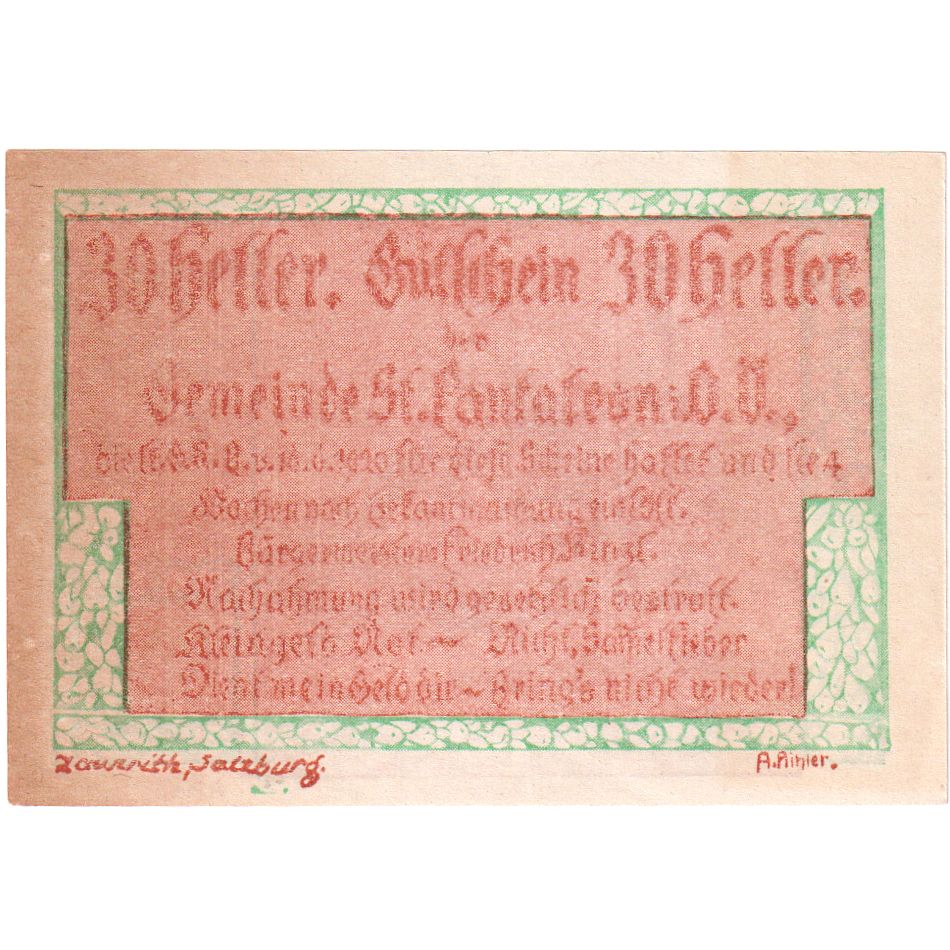 30 Heller. Gutschein 30 Heller.
der
Gemeinde St. Pantaleon, O.Ö.,
die lt. für diese Scheine haftet und sie 4
Wochen nach Bekanntmachung einlöst.
Bürgermeister: Friedrich
Nachahmung wird gesetzlich bestraft.
Kleingeld Not ~ Nicht Sammelfieber
Dient mein Geld dir ~ Bring's nicht wieder!
Salzburg.